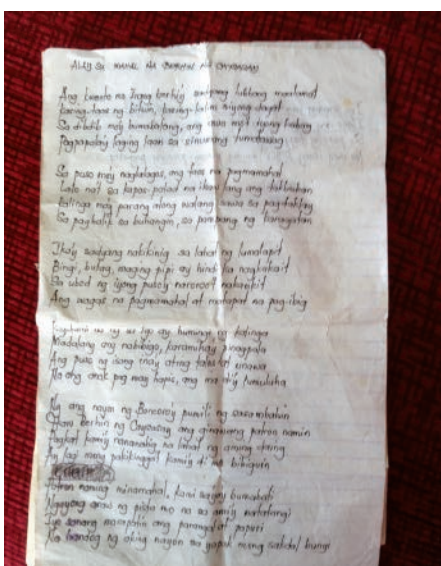 ALAY SA MAHAL NA BIRHEN NG CAYSASAY
Ang bunito na Inang
bituin, kasing
Sa dibdib may bumabalong, ang awa mo't iyong habag
Pagpapala'y laging laan sa sinumang tumatawag
Sa puso mong naglalagos, ang taos na pagmamahal
Lalo na't sa kapos-palad na ikaw lang ang takbuhan
Kalinga mo'y parang along walang sawa sa pagdatay
Sa paghalik sa buhangin, sa pampang ng karagatan
Ika'y sadyang nakikinig sa lahat ng lumalapit
Bingi, bulag, maging pipi ay hindi ka nagkakait
Sa ubod ng iyong puso'y naroroo't nakasisid
Ang wagas na pagmamahal at matapat na pag-ibig
sa iyo ay humingi ng kalinga
Madalang ang nabibigo, karamiha'y pinagpala
Ang puso ng isang inay ating unawa
Na ang anak pag may hapis, ang ina di'y lumuluha
Ng ang nayon ng pumili ng sasambahin
Mahal birhin ng Caysasay ang ginawang patron namin
kami'y nananalig na lahat ng aming daing
Ay lagi mong pakikinggat kami'y di mo bibiguin
Patron naming minamahal, kami ngayo'y bumabati
Ngayong araw ng pista mo na sa ami'y natatangi
Iyo sanang marapatin ang parangal at papuri
Na handog ng aking nayon sa yapak mong